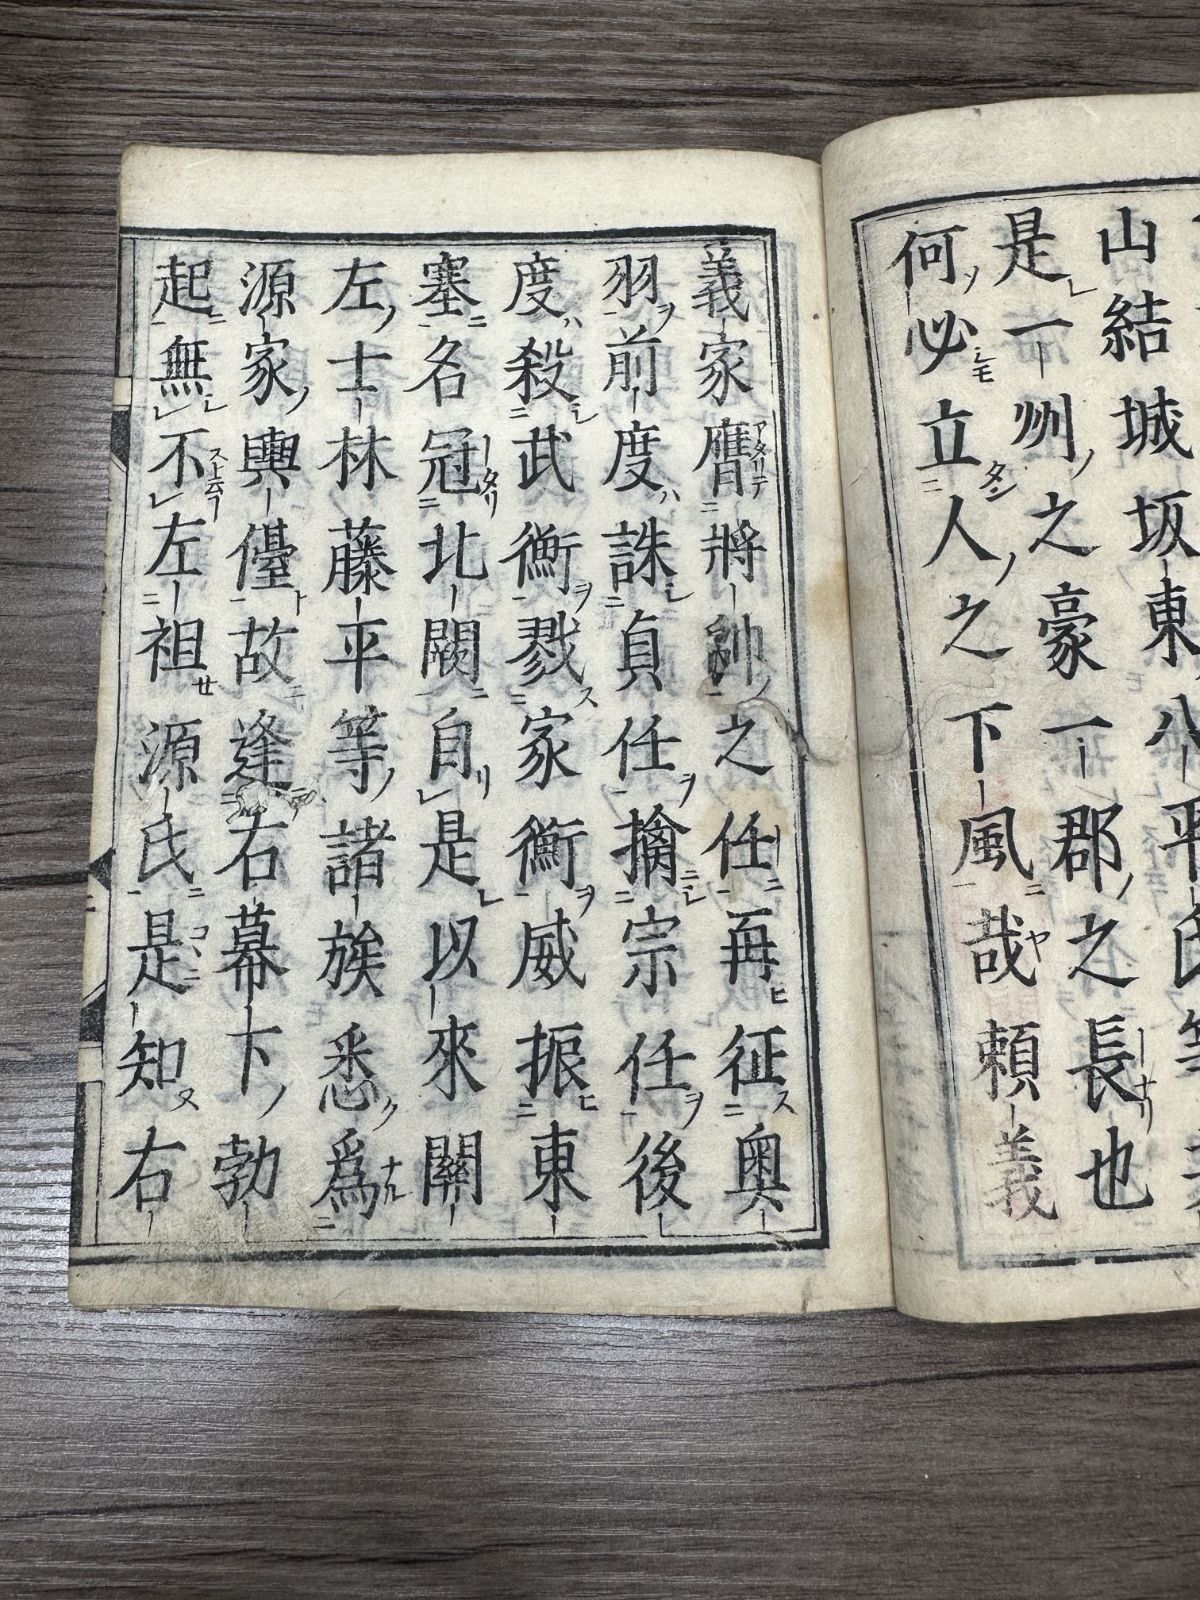 山結城坂東八平氏等
是一州之豪一郡之長也
何必立人之下風哉賴義
義家膺將帥之任再征奥
羽前度誅貞任擒宗任後
度殺武衡戮家衡威振東
塞名冠北闕自是以來關
左士林藤平等諸族悉爲
源家輿儓故逢右幕下勃
起無不左祖源氏是知右